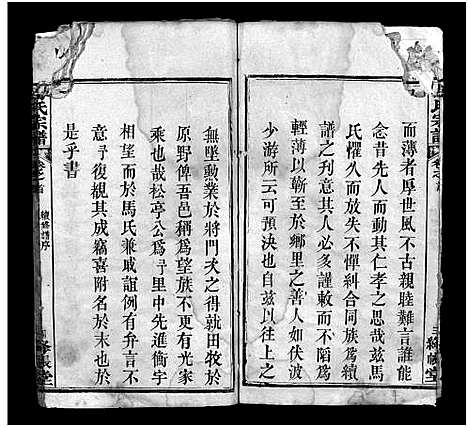 而薄者厚世風不古親睦難言誰能
念昔先人而動其仁孝之思哉茲馬
氏懼久而放失不憚糾合同族為續
譜之刊其人必多謹敕而不陥爲
輕薄以蘄至於鄉里之善人如伏波
少游所云可預決也自茲以往上之
無墜勳業於將門次之得執田牧於
原野俾吾邑稱爲望族不更有光家
乘也哉松亭公爲予里中先進衡宇
相望而於馬氏兼戚誼例有弁言不
意予復觀其成竊喜附名於末也於
是乎書
氏宗譜
卷之首
續修譜序
絳帳堂